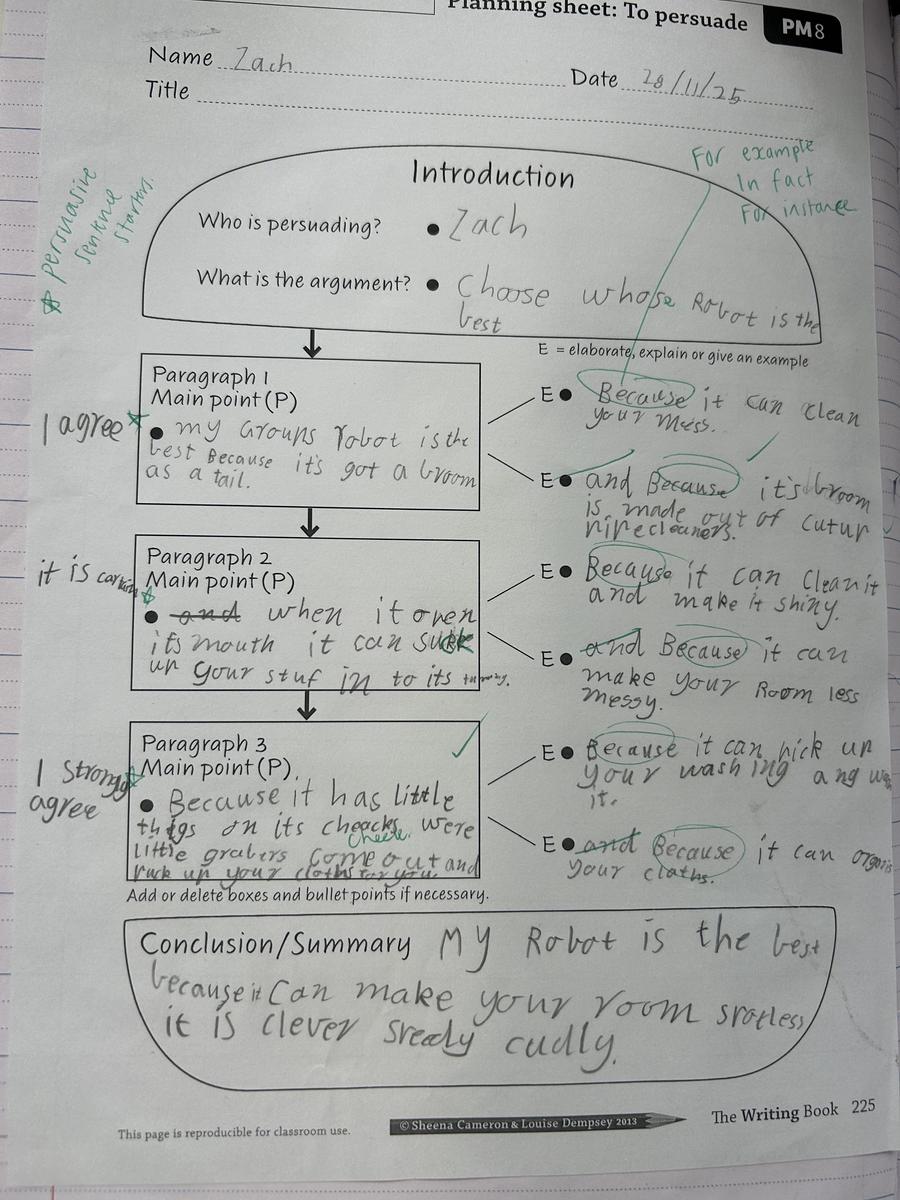 Planning sheet: To persuade
PM8
Name Zach
Date 28/11/25
Title
persuasive
sentence
starters.
For example
In fact
For instance
Introduction
Who is persuading?
• Zach
What is the argument?
• Choose whose Robot is the
best
E = elaborate, explain or give an example
I agree
Paragraph 1
Main point (P)
• my Groups robot is the
best Because it's got a broom
as a tail.
E • Because it can clean
your mess.
E • and Because it's broom
is made out of cutur
pipecleaners.
it is
Paragraph 2
Main point (P)
• and when it open
its mouth it can suck
up your stuf in to its
E • Because it can clean it
and make it shiny.
E • and Because it can
make your Room less
messy.
I Strongly
agree
Paragraph 3
Main point (P)
• Because it has little
things on its cheacks were
cheek
little grabers Come out and
your cloths for you.
E • Because it can pick up
your washing ang
it.
E • and Because it can
your cloths.
Add or delete boxes and bullet points if necessary.
Conclusion/Summary My Robot is the best
because it Can make your room spotless
it is clever sready cudly.
This page is reproducible for classroom use.
© Sheena Cameron & Louise Dempsey 2013
The Writing Book 225